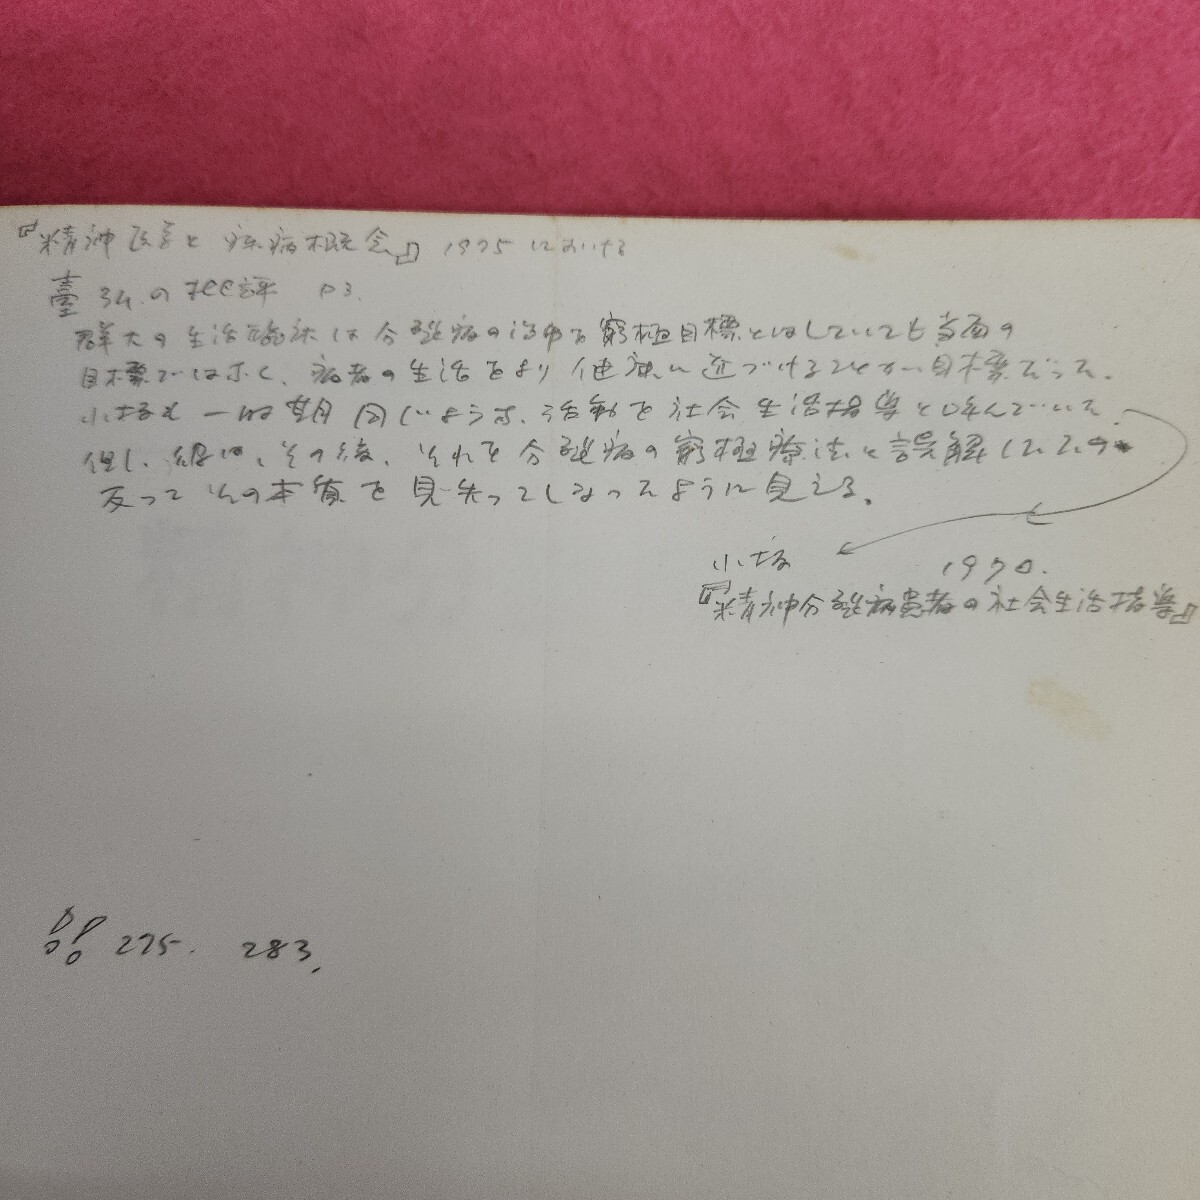 『精神医学と疾病概念』 1975 における
臺 弘の批評 p3.
群大の生活臨床は分裂病の治ゆを窮極目標とはしていても当面の
目標ではなく、病者の生活をより健康に近づけることが目標だった。
小坂も一時期同じような活動を社会生活指導と呼んでいた
但し、彼は、その後、それを分裂病の窮極療法と誤解したため
反ってその本質を見失ってしまったように見える。
小坂 1970.
『精神分裂病患者の社会生活指導』
!! 275. 283.